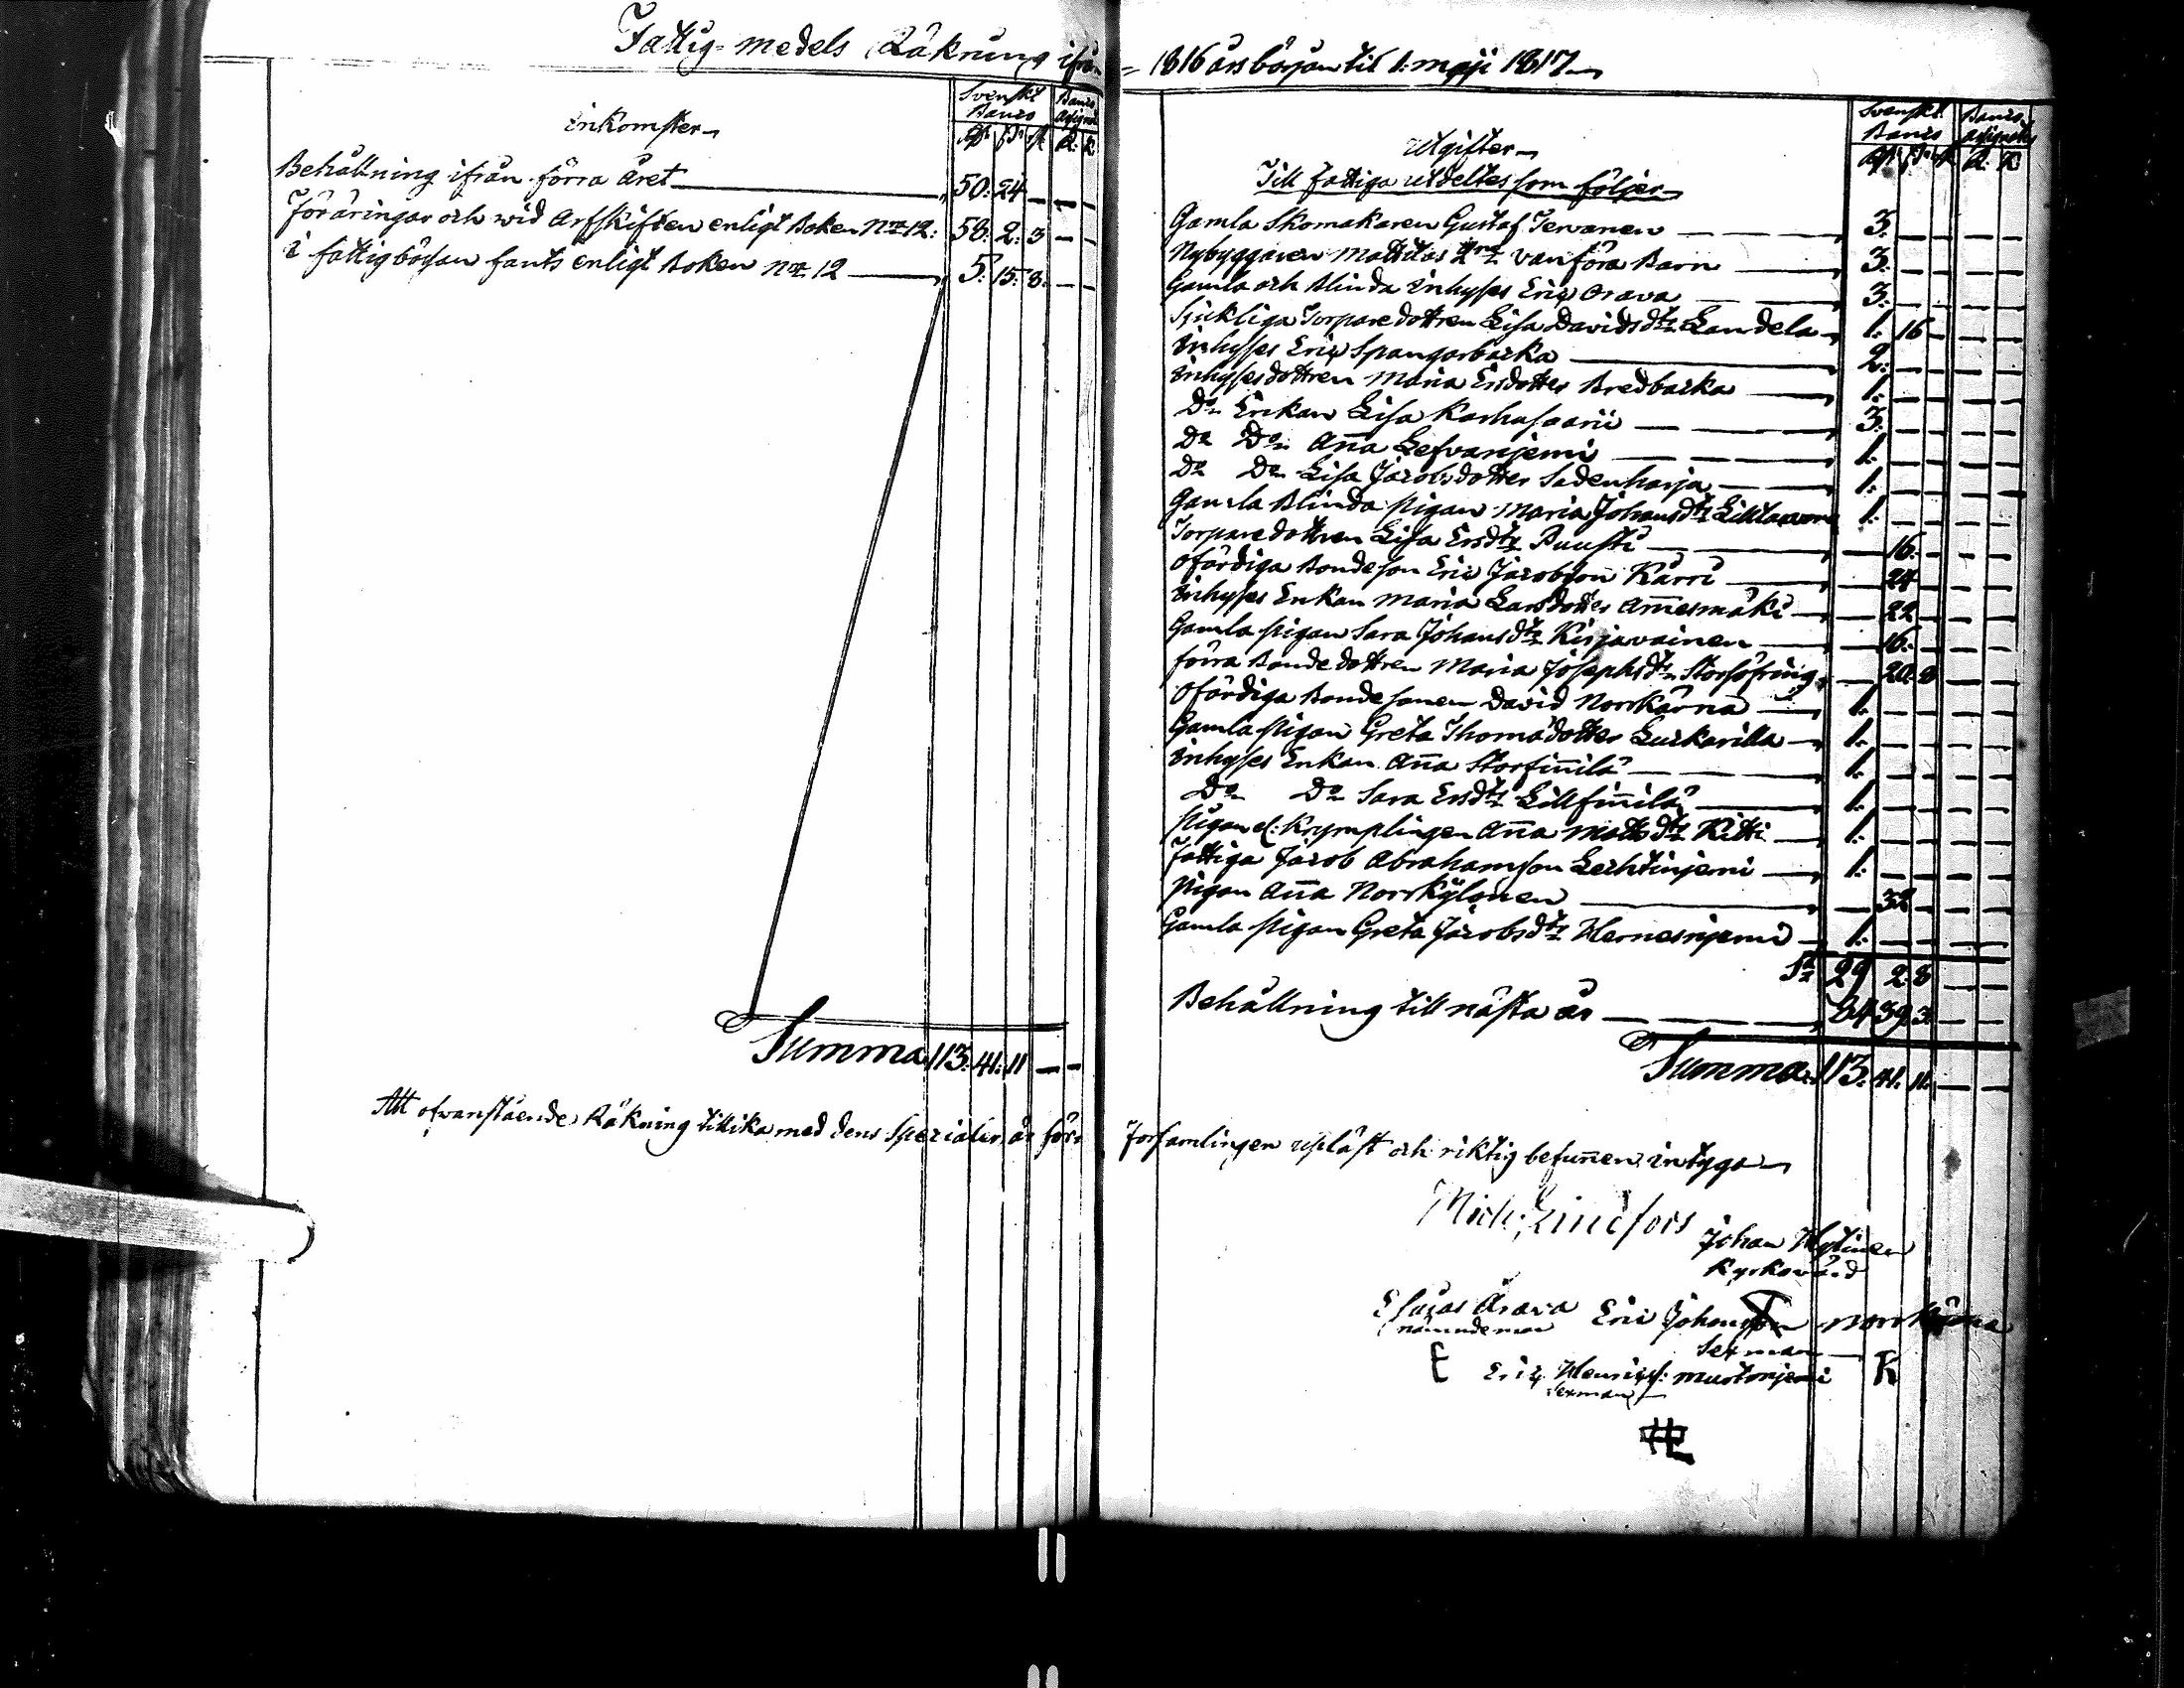 Fattig-medels Räkning ifrån 1816 års början til 1: maji 1817
Inkomster
Svenskt Banco
Banco assignat.
Rd. sk. r. R. K.
Behållning ifrån förra Året 50: 24 — — —
Föräringar och wid Arfskiften enligt Boken No 12: 58: 2: 3 — —
i fattigbössan fants enligt Boken No 12 5: 15: 8: — —
Summa 113: 41: 11 — —
Utgifter
Svenskt Banco
Banco assignats
Rd. sk. r. R. K.
Till fattiga utdeltes som följer
Gamla Skomakaren Gustaf Tervanen 3: — — — —
Nybyggaren Mattitas 2ne vanföra Barn 3: — — — —
Gamla och Blinda Inhyses Eric Orava 3: — — — —
Sjukliga Torparedottren Lisa Davidsdtr Landela 1: 16 — — —
Inhyses Eric Spangarbacka 2: — — — —
Inhysesdottren Maria Ersdotter Bredbacka 1: — — — —
Do Enkan Lisa Karhusaari 3: — — — —
Do Do Anna Lefvaniemi 1: — — — —
Do Do Lisa Jacobsdotter Sadenharja 1: — — — —
Gamla Blinda pigan Maria Johansdtr 1: — — — —
Torparedottren Lisa Ersdtr Puusti — 16: — — —
Ofärdiga Bondeson Eric Jacobsson Karri — 24 — — —
Inhyses Enkan Maria Larsdotter Ammesmäki — 22 — — —
Gamla pigan Sara Johansdtr Kirjavainen — 16: — — —
förra Bondedottren Maria Josephsdtr Storsöfring — 20: 8 — —
Ofärdiga Bondesonen David Norrkärnä 1: — — — —
Gamla pigan Greta Thomädotter Luckarilla 1: — — — —
Inhyses Enkan Anna Storfinnilä 1: — — — —
Do Do Sara Ersdtr Lillfinnilä 1: — — — —
pigan el: Krymplingen Anna Mattsdtr Kitti 1: — — — —
fattiga Jacob Abrahamson Lechtinjemi 1: — — — —
pigan Anna Norrkylänen — 32 — — —
Gamla pigan Greta Jacobsdtr Hernesnjemi 1: — — — —
Sa 29 2: 8 — —
Behållning till nästa år 84 39: 3: — —
Summa 113: 41: 11: — —
Att ofvanstående Räkning tillika med dess Specialier, är för Församlingen upläst och riktig befunnen intyga
Mich: Lindfors
Johan Hytinen
Kyrkovärd
Esaias Arava Eric Johansson Norrkärnä
nämndeman
Sexman
E Eric Henricss: Mustonjemi K
Sexman